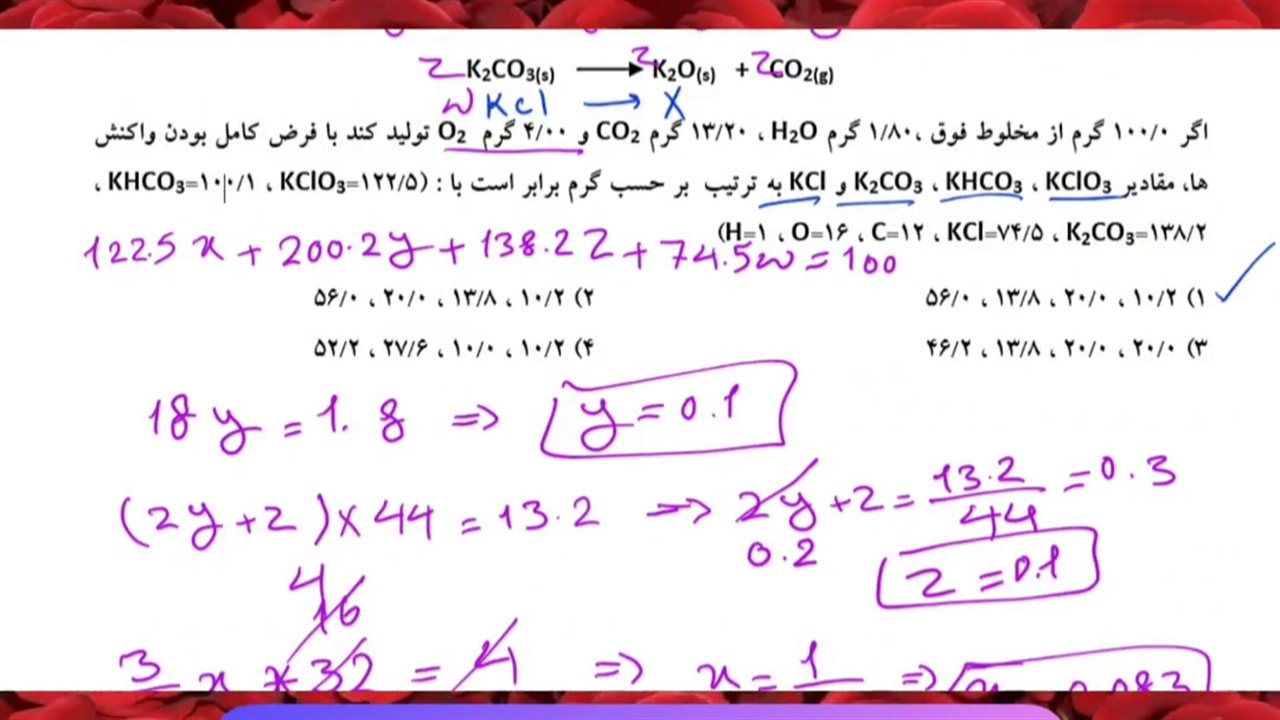 z K₂CO₃(s) ⟶ z K₂O(s) + z CO₂(g)
w KCl → X
اگر ۱۰۰/۰ گرم از مخلوط فوق ،۱/۸۰ گرم H₂O ، ۱۳/۲۰ گرم CO₂ و ۴/۰۰ گرم O₂ تولید کند با فرض کامل بودن واکنش
ها، مقادیر KClO₃ ، KHCO₃ ، K₂CO₃ و KCl به ترتیب بر حسب گرم برابر است با : (KClO₃=۱۲۲/۵ ، KHCO₃=۱۰۰/۱ ،
K₂CO₃=۱۳۸/۲ ، KCl=۷۴/۵ ، C=۱۲ ، O=۱۶ ، H=۱)
122.5 x + 200.2y + 138.2z + 74.5w = 100
۱) ۱۰/۲ ، ۲۰/۰ ، ۱۳/۸ ، ۵۶/۰ ✓
۲) ۱۰/۲ ، ۱۳/۸ ، ۲۰/۰ ، ۵۶/۰
۳) ۲۰/۰ ، ۲۰/۰ ، ۱۳/۸ ، ۴۶/۲
۴) ۱۰/۲ ، ۱۰/۰ ، ۲۷/۶ ، ۵۲/۲
18 y = 1.8 => y = 0.1
(2y + z) × 44 = 13.2 => 2y + z = 13.2/44 = 0.3
0.2
z = 0.1
4
16
3 x × 32 = 4 => x = 1 =>